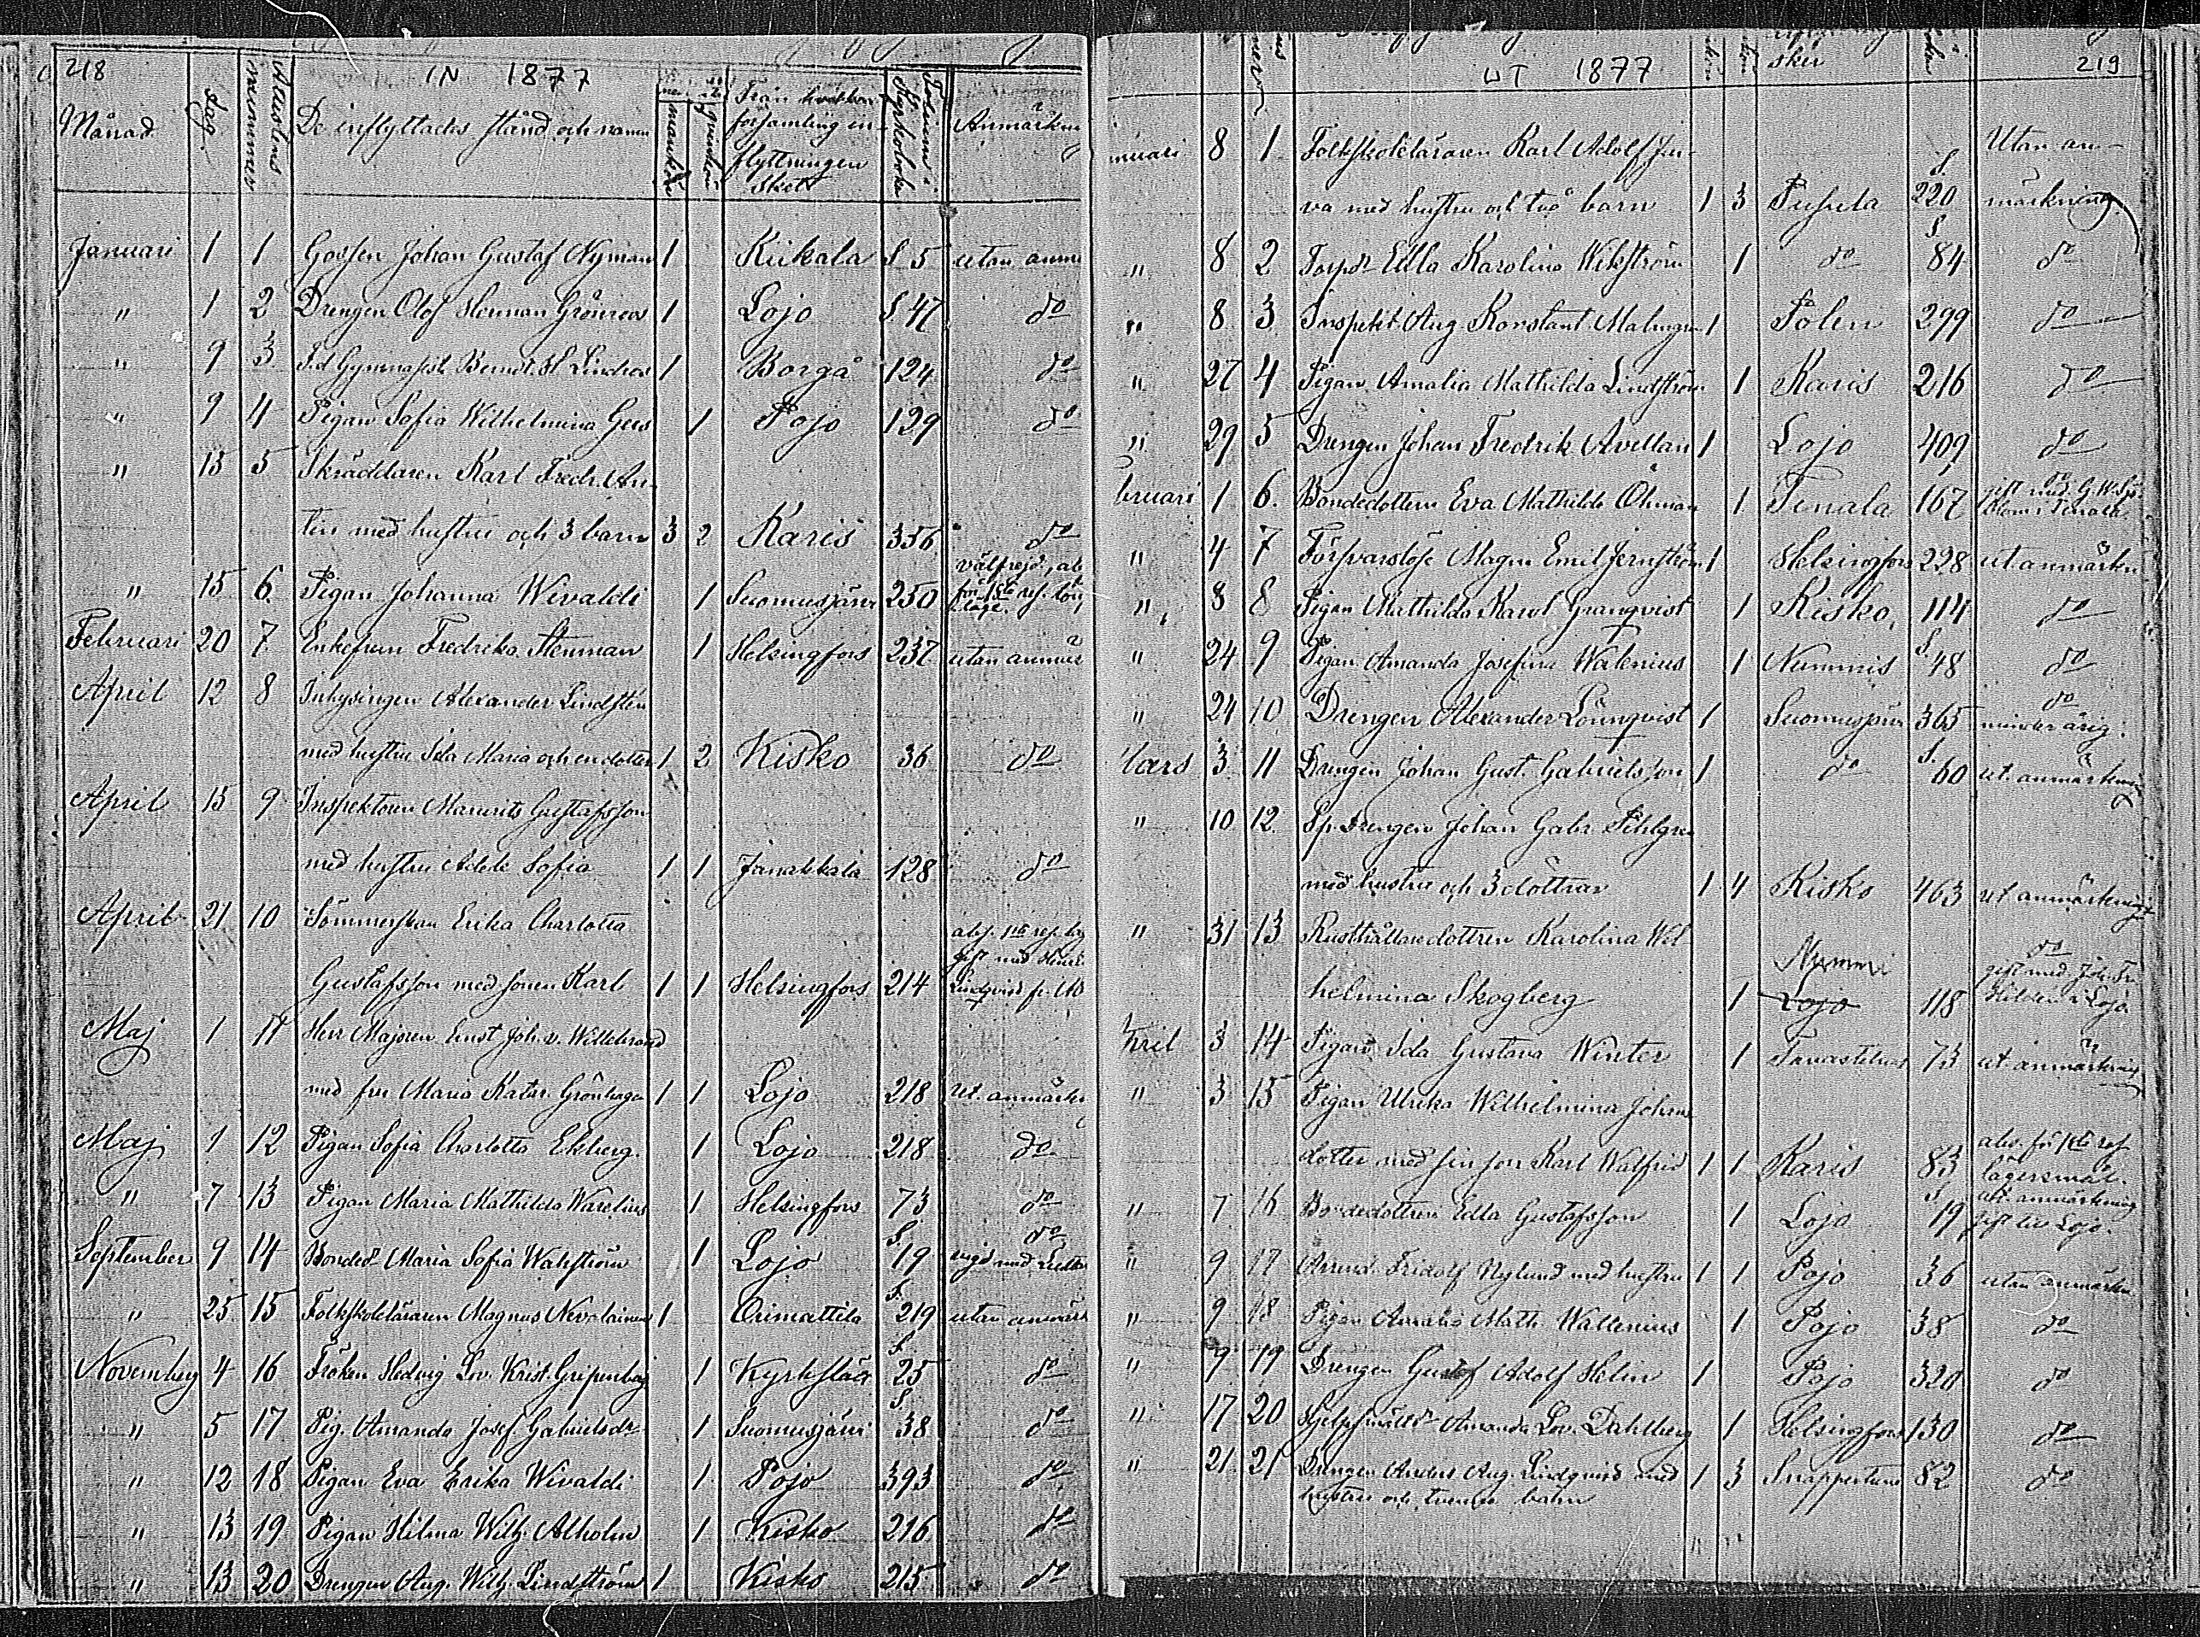 218 IN 1877
Månad Dag. Attestens nummer De inflyttades stånd och namn mankön qvinkön Från hvilken församling inflyttningen skett Folium i Kyrkoboken Anmärkn
Januari 1 1 Gossen Johan Gustaf Nyman 1 Kiikala S. 5 utan anm
" 1 2 Drengen Olof Herman Grönroos 1 Lojo S. 47 do
" 9 3 F.d Gymnasist Bernd. H Lindroos 1 Borgå 124 do
" 9 4 Pigan Sofia Wilhelmina Gers 1 Pojo 139 do
" 15 5 Skräddaren Karl Fredr. An-
tin med hustru och 3 barn 3 2 Karis 356 do
" 15 6. Pigan Johanna Wivaldi 1 Suomusjärvi 250 välfrejd., ab för 1sta res. lön läge.
Februari 20 7 Enkefrun Fredrika Stenman 1 Helsingfors 237 utan anmär
April 12 8 Inhysingen Alexander Lindsten
med hustru Ida Maria och en dotter 1 2 Kisko 36 do
April 15 9 Inspektoren Maurits Gustafsson
med hustru Adele Sofia 1 1 Janakkala 128 do
April 21 10 Sömmerskan Erika Charlotta
Gustafsson med sonen Karl 1 1 Helsingfors 214 gift med Lindqvist fr.
Maj 1 11 Herr Majoren Ernst Joh. v. Willebrand
med fru Maria Katar. Grönhagen 1 1 Lojo 218 ut. anmärkn
Maj 1 12 Pigan Sofia Charlotta Ekberg. 1 Lojo 218 do
" 7 13 Pigan Maria Mathilda Warelius 1 Helsingfors 73 do
September 9 14 Bonded. Maria Sofia Wahlström 1 Lojo S. 19 do vigd med
" 25 15 Folkskoleläraren Magnus Nevalainen 1 Orimattila S. 219 utan anmärk
November 4 16 Fröken Hedvig Lov. Krist. Gripenberg 1 Kyrkslätt S. 25 do
" 5 17 Pig. Amanda Josef. Gabrielsdr 1 Suomusjärvi S. 38 do
" 12 18 Pigan Eva Erika Wivaldi 1 Pojo 393 do
" 13 19 Pigan Hilma Wilh. Alholm 1 Kisko 216 do
" 13 20 Drengen Aug. Wilh. Lindström 1 Kisko 215 do
UT 1877 219
nuari 8 1 Folkskoleläraren Karl Adolf Jer- Utan an-
va med hustru och två barn 1 3 Pusula S. 220 märkning
" 8 2 Torpdr Edla Karolina Wikström 1 do S. 84 do
" 8 3 Inspekt. Aug Konstant Malmgren 1 Polen 299 do
" 27 4 Pigan Amalia Mathilda Lindström 1 Karis 216 do
" 29 5 Drengen Johan Fredrik Avellan 1 Lojo 409 do
bruari 1 6. Bondedottern Eva Mathilda Öhman 1 Tenala 167 do gift med G. W. i Tenala.
" 4 7 Försvarslöse Magn Emil Jernström 1 Helsingfors 228 ut anmärkn
" 8 8 Pigan Mathilda Karol. Granqvist 1 Kisko 114 do
" 24 9 Pigan Amanda Josefina Walenius 1 Nummis S. 48 do
" 24 10 Drengen Alexander Lönnqvist 1 Suomusjärvi 365 do minderårig.
Mars 3 11 Drengen Johan Gust. Gabrielsson 1 do S. 60 ut. anmärkning
" 10. 12. Sp. drengen Johan Gabr. Pihlgren
med hustru och 3 döttrar 1 4 Kisko 463 ut anmärkning
" 31 13 Rusthållaredottren Karolina Wil-
helmina Skogberg 1 Nummi Lojo 118 do gift med Joh. Fr. i Lojo.
April 3 14 Pigan Ida Gustava Winter 1 Tavastehus 73 ut anmärkning
" 3 15 Pigan Ulrika Wilhelmina Johans
dotter med sin son Karl Walfrid 1 1 Karis 83 abs. för 1sta res. lägersmål.
" 7 16 Bondedottren Edla Gustafsson 1 Lojo S. 19 utan anmärkning gift till Lojo.
" 9 17 Arrend. Fridolf Nylund med hustru 1 1 Pojo 36 utan anmärkn
" 9 18 Pigan Amalia Math. Wallenius 1 Pojo 38 do
" 9 19 Drengen Gustaf Adolf Helin 1 Pojo 320 do
" 17 20 Amanda Lov. Dahlberg 1 Helsingfors 130 do
" 21. 21 Drengen Anders Aug. Lindqvist med 1 3 Snappertuna 82 do
hustru och tvenne barn